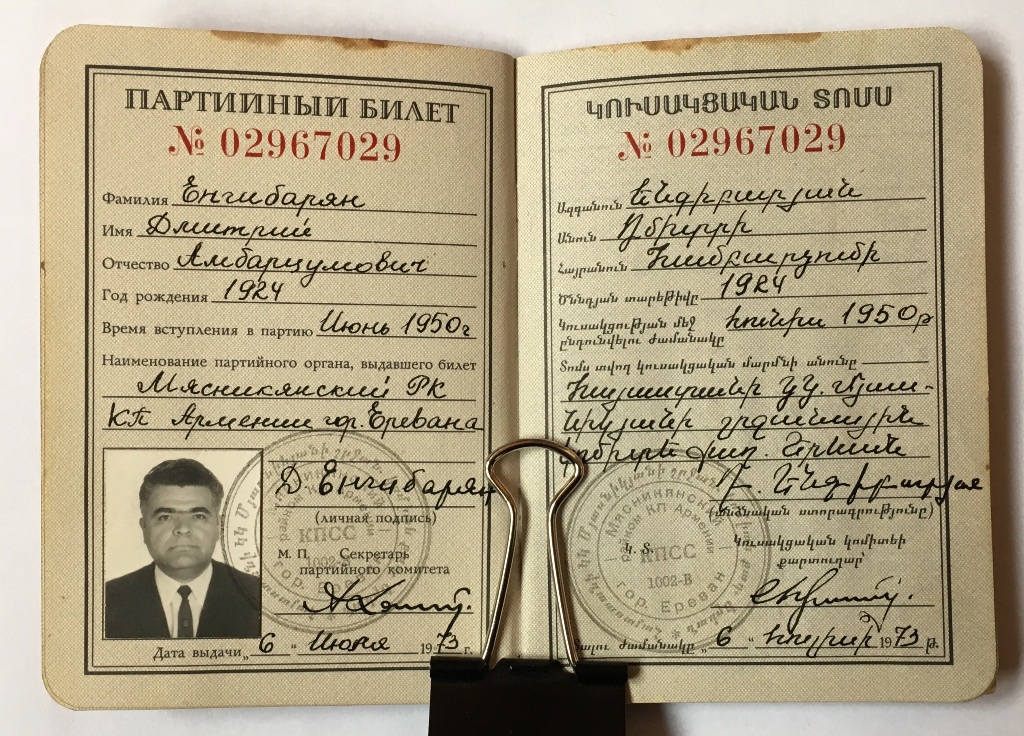 ПАРТИЙНЫЙ БИЛЕТ
№ 02967029
Фамилия Енгибарян
Имя Дмитрий
Отчество Амбарцумович
Год рождения 1924
Время вступления в партию Июнь 1950г
Наименование партийного органа, выдавшего билет
Мясникянский РК
КП Армении гор. Еревана
Д. Енгибарян
(личная подпись)
М. П. Секретарь
партийного комитета
КПСС
1002-В
Дата выдачи „6“ Июля 1973 г.
ԿՈՒՍԱԿՑԱԿԱՆ ՏՈՄՍ
№ 02967029
Ազգանուն Ենգիբարյան
Անուն Դմիտրի
Հայրանուն Համբարձումի
Ծննդյան տարեթիվը 1924
Կուսակցության մեջ
ընդունվելու ժամանակը հունիս 1950թ
Տոմս տվող կուսակցական մարմնի անունը
Հայաստանի ԿԿ Մյաս-
նիկյանի շրջանային
կոմիտե քաղ. Երևան
Դ. Ենգիբարյան
(անձնական ստորագրությունը)
Կ. Տ. Կուսակցական կոմիտեի
քարտուղար՝
Мясникянский
райком КП Армении
КПСС
1002-В
гор. Ереван
տալու ժամանակը „6“ հուլիսի 1973 թ.